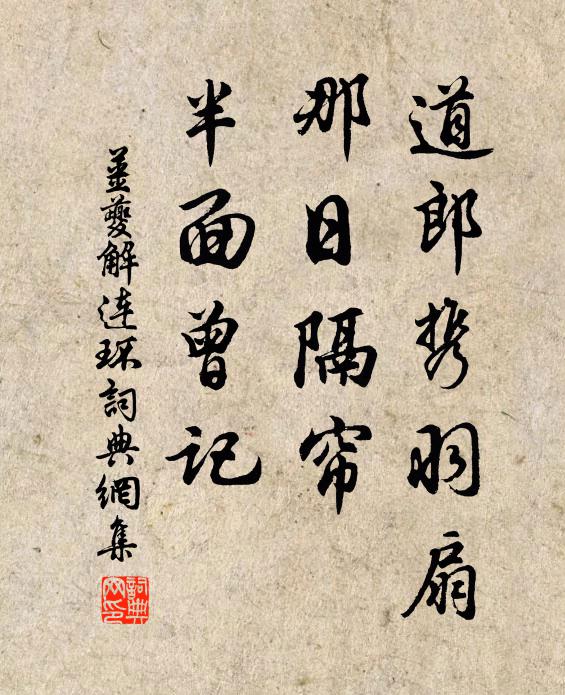 道郎携羽扇
那日隔帘
半面曾记
姜夔解连环词典網集
詞典网印